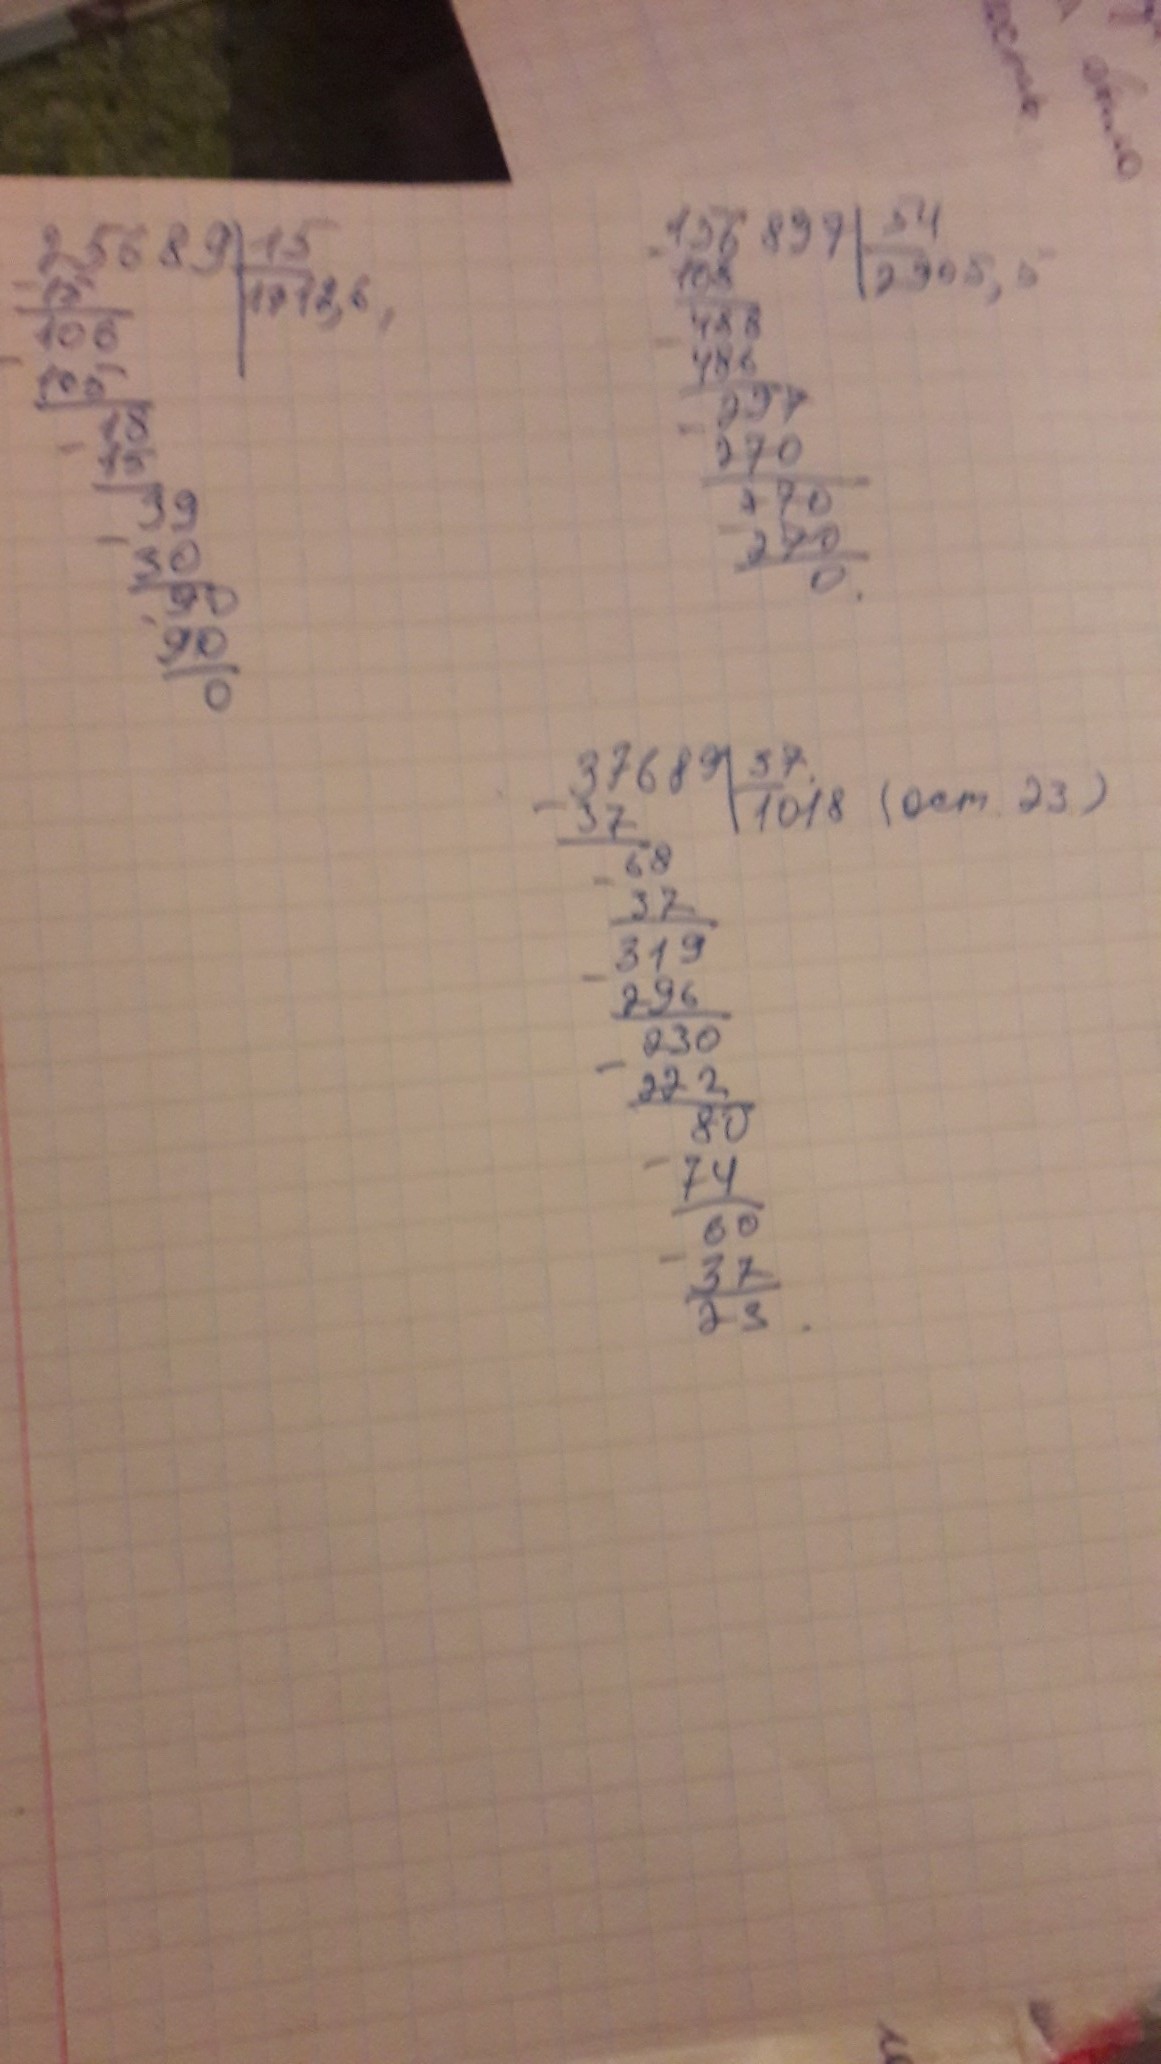 25689 15
- 15 1712,6,
106
- 105
18
- 15
39
- 30
90
90
0
156897 54
- 108 2905,5
488
- 486
297
- 270
270
- 270
0.
37689 37.
- 37 1018 (ост. 23.)
68
- 37
319
- 296
230
- 222
80
- 74
60
- 37
23.